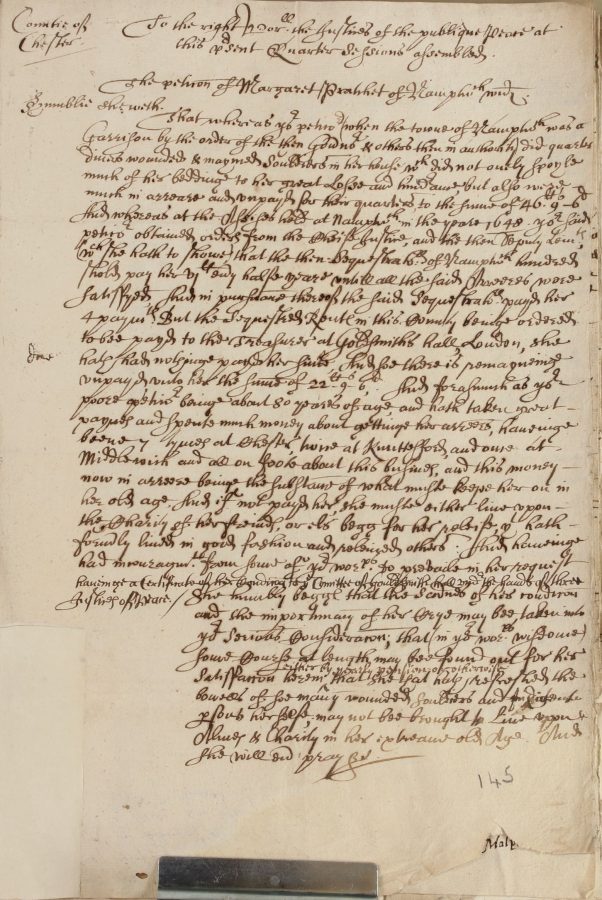 Countie of
Chester
To the right Worll the Justices of the publique Peace at
this p'sent Quarter Sessions assembled
The peticon of Margaret Pratchet of Namptwch widd
Humblie sheweth
That whereas yor petr (when the towne of Namptwch was a
Garrison by the order of the then Governor & others then in authority) did quarter
divers wounded & maymed Souldiers in her house wch did not onely spoyle
much of her beddinge to her great Losse and hindrance but also were
much in arreare and unpayd for their quarters to the summe of 46li 9s 6d
And whereas at the Assises held at Namptwch in the yeare 1648 yor said
petr obtained orders from the Cheife Justice, and the then Deputy Leivts
wch she hath to shewe, that the then Sequestratrs of Namptwch hundred
shold pay her vjli ev'y halfe yeare untill all the said Arreres were
satisfyed And in pursuance thereof the said Sequestratrs payd her
4 paymts But the Sequestred Rents in this County beinge ordered
to bee payd to the Treasurer at Goldsmiths hall London, she
hath had nothinge payd her since And soe there is remayneinge
unpayd unto her the summe of 22li 9s 6d And forasmuch as yor
poore petr beinge about 80 yeares of age and hath taken great
paynes and spent much money about gettinge her arreres, haveinge
beene 7 tymes at Chester, twice at Knuttsford, and once at
Middlewich and all on foote about this busines, and this money
now in arreere beinge the substance of what muste keepe her on in
her old age And if not payd her, she muste either live upon
the Charity of her freinds, or els begg for her releife, yt hath
form'ly lived in good fashion and releived others: And haveinge
had incouragmt from some of yor worps to prevade in her request
haveinge a Certificate of her Condicon to ye Comittee of Gouldsmiths hall under the hands of three
Justices of Peace /
She humbly beggs that the sadnes of her condicon
and the importunity of her Crye may bee taken into
yor serious Consideracon; that in yor worps wisdome
some Course at length may bee found out for her
either by yearly pension or otherwise
satisfaccon herein that she that hath refreshed the
bowells of soe many wounded souldiers and indigent
p'sons her selfe, may not bee brought to Live upon
Almes & Charity in her extreame old Age. And
she will ev'r pray &c
145
Malp